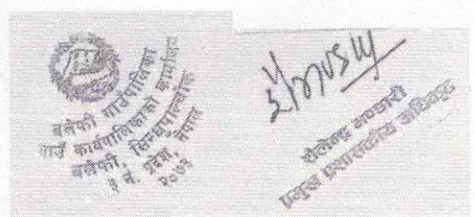 बलेफी गाउँपालिका
गाउँ कार्यपालिकाको कार्यालय
बलेफी, सिन्धुपाल्चोक
३ नं. प्रदेश, नेपाल
२०७३
शैलेन्द्र भण्डारी
प्रमुख प्रशासकीय अधिकृत